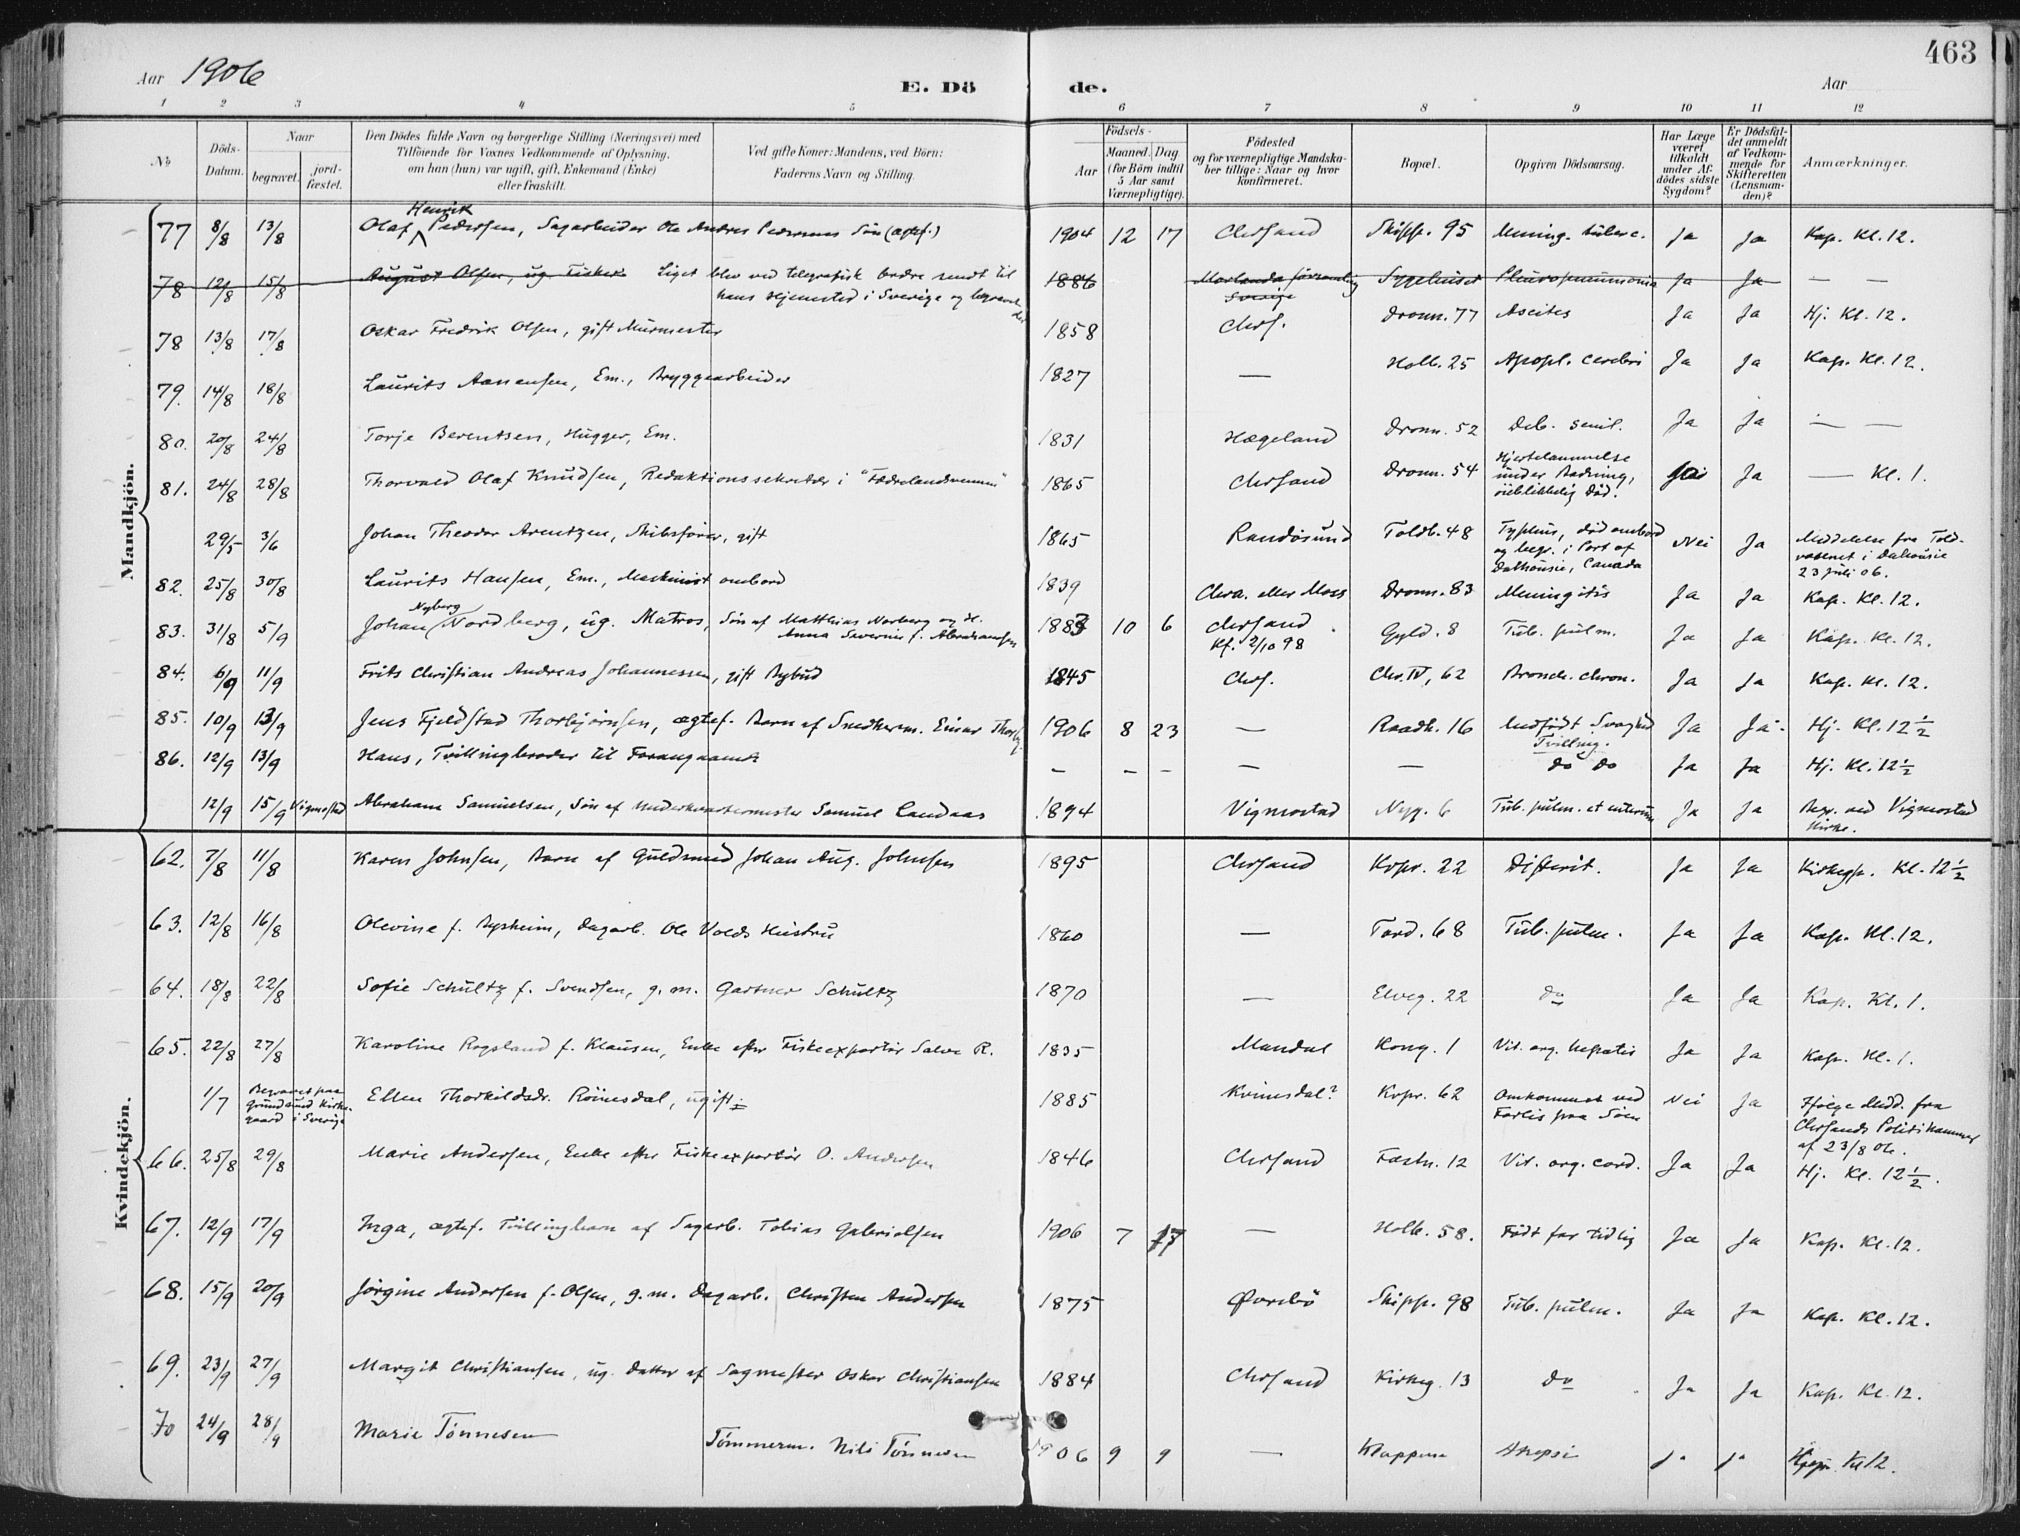 463
Aar 1906
E. Dö de.
Aar
1 2 3 4 5 6 7 8 9 10 11 12
No
Döds-Datum.
Naar
begravet.
jord-fæstet.
Den Dödes fulde Navn og borgerlige Stilling (Næringsvei) med
Tilföiende for Voxnes Vedkommende af Oplysning,
om han (hun) var ugift, gift, Enkemand (Enke)
eller fraskilt.
Ved gifte Koner: Mandens, ved Börn:
Faderens Navn og Stilling.
Födsels-
Aar
Maaned. Dag
(for Börn indtil
5 Aar samt
Værnepligtige).
Födested
og for værnepligtige Mandska-
ber tillige: Naar og hvor
konfirmeret.
Bopæl.
Opgiven Dödsaarsag.
Har Læge
været
tilkaldt
under Af-
dödes sidste
Sygdom?
Er Dödsfal-
det anmeldt
af Vedkom-
mende for
Skifteretten
(Lensman-
den)?
Anmærkninger.
Mandkjön.
77 8/8 13/8 Olaf Henrik Pedersen, Sagarbeider Ole Andres Pedersens Søn (ægtef.) 1904 12 17 Chrsand Skipp. 95 Mening. tuberc. Ja Ja Kap. Kl. 12.
78 12/8 15/8 August Olsen, ug. Fisker Liget blev ved telegrafisk Ordre sendt til 1886 Morlanda församling Sygehuset Pleuropneumonia Ja Ja — —
hans Hjemsted i Sverige og begravet der
Sverige
78 13/8 17/8 Oskar Fredrik Olsen, gift Murmester 1858 Chrs. Dronn. 77 Ascites Ja Ja Hj. Kl. 12.
79. 14/8 18/8 Laurits Aanensen, Em., Bryggearbeider 1827 — Holb. 25 Apopl. cerebri Ja Ja Kap. Kl. 12.
80. 20/8 24/8 Torje Berentsen, Hugger, Em. 1831 Hægeland Dronn. 52 Deb. senil. Ja Ja — —
81. 24/8 28/8 Thorvald Olaf Knudsen, Redaktionssekretær i "Fædrelandsvennen" 1865 Chrsand Dronn. 54 Hjertelammelse
under Badning,
øieblikkelig Død. Ja — Kl. 1.
29/5 3/6 Johan Theodor Arentzen, Skibsfører, gift 1865 Randøsund Toldb. 48 Typhus, død ombord
og begr. i Port of
Dalhousie, Canada Nei Ja Meddelelse fra Told-
væsenet i Dalhousie
23 juli 06.
82. 25/8 30/8 Laurits Hansen, Em., Maskinist ombord 1839 Chra. eller Moss Dronn. 83 Meningitis Ja Ja Kap. Kl. 12.
83. 31/8 5/9 Johan Nyberg Nordberg, ug. Matros, Søn af Matthias Norberg og H.
Anna Severine f. Abrahamsen 1883 10 6 Chrsand
Kf. 2/10 98 Gyld. 8 Tub. pulm. Ja Ja Kap. Kl. 12.
84. 6/9 11/9 Frits Christian Andreas Johannessen, gift Bybud 1845 Chrs. Chr. IV, 62 Bronch. chron. Ja Ja Kap. Kl. 12.
85. 10/9 13/9 Jens Fjeldstad Thorbjørnsen, ægtef. Barn af Snedkerm. Einar Thorbj. 1906 8 23 — Raadh. 16 Medfødt Svaghed
Tvilling. Ja Ja Hj. Kl. 12 1/2
86. 12/9 13/9 Hans, Tvillingbroder til Foregaaende — — — — — do do Ja Ja Hj. Kl. 12 1/2
12/9 15/9 Vigmostad Abraham Samuelsen, Søn af Underkvartermester Samuel Landaas 1894 Vigmostad Nyg. 6 Tub. pulm. et enterum Ja Ja Begr. ved Vigmostad
Kirke.
Kvindekjön.
62. 7/8 11/8 Karen Johnsen, Barn af Guldsmed Johan Aug. Johnsen 1895 Chrsand Kvpr. 22 Difterit. Ja Ja Kirkegp. Kl. 12 1/2
63. 12/8 16/8 Olevine f. Bysheim, Dagarb. Ole Volds Hustru 1860 — Tord. 68 Tub. pulm. Ja Ja Kap. Kl. 12.
64. 18/8 22/8 Sofie Schultz f. Svendsen, g. m. Gartner Schultz 1870 — Elveg. 22 do Ja Ja Kap. Kl. 1.
65. 22/8 27/8 Karoline Rogsland f. Klausen, Enke efter Fiskeexportør Salve R. 1835 Mandal Kong. 1 Vit. org. hepatis Ja Ja Kap. Kl. 1.
1/7 Begravet paa
Grundsund Kirke-
gaard i Sverige Ellen Thorkildsdr. Röinesdal, ugift 1885 Kvinesdal? Kvpr. 62 Omkommet ved
Forlis paa Søen Nei Ja Ifølge Medd. fra
Chrsands Politikammer
af 23/8 06.
66. 25/8 29/8 Marie Andersen, Enke efter Fiskeexportør O. Andersen 1846 Chrsand Fæstn. 12 Vit. org. cord. Ja Ja Hj. Kl. 12 1/2.
67. 12/9 17/9 Inga, ægtef. Tvillingbarn af Sagarb. Tobias Gabrielsen 1906 7 — Holb. 58. Født for tidlig Ja Ja Kap. Kl. 12.
68. 15/9 20/9 Jørgine Andersen f. Olsen, g. m. Dagarb. Christen Andersen 1875 Øvrebø Skipp. 98 Tub. pulm. Ja Ja Kap. Kl. 12.
69. 23/9 27/9 Margit Christiansen, ug. Datter af Sagmester Oskar Christiansen 1884 Chrsand Kirkeg. 13 do Ja Ja Kap. Kl. 12.
70 24/9 28/9 Marie Tønnesen Tømmerm. Nils Tønnesen 1906 9 9 — Klappene Atrepsi Ja Ja Kl 12.